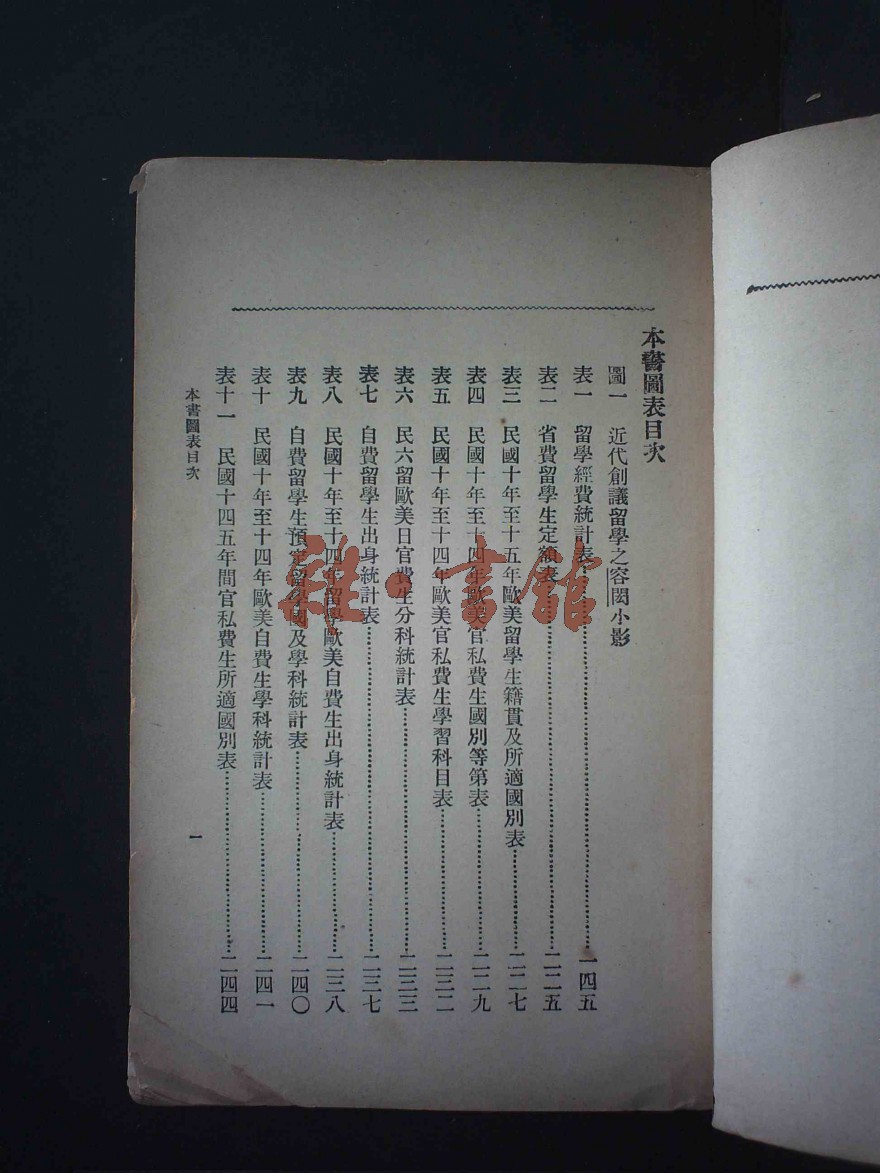 本書圖表目次
圖一 近代創議留學之容閎小影
表一 留學經費統計表……一四五
表二 省費留學生定額表……二二五
表三 民國十年至十五年歐美留學生籍貫及所適國別表……二二七
表四 民國十年至十四年歐美官私費生國別等第表……二二九
表五 民國十年至十四年歐美官私費生學習科目表……二三二
表六 民六留歐美日官費生分科統計表……二三三
表七 自費留學生出身統計表……二三七
表八 民國十年至十四年留學歐美自費生出身統計表……二三八
表九 自費留學生預定留學國及學科統計表……二四〇
表十 民國十年至十四年歐美自費生學科統計表……二四一
表十一 民國十四五年間官私費生所適國別表……二四四
本書圖表目次
一
雜·書館